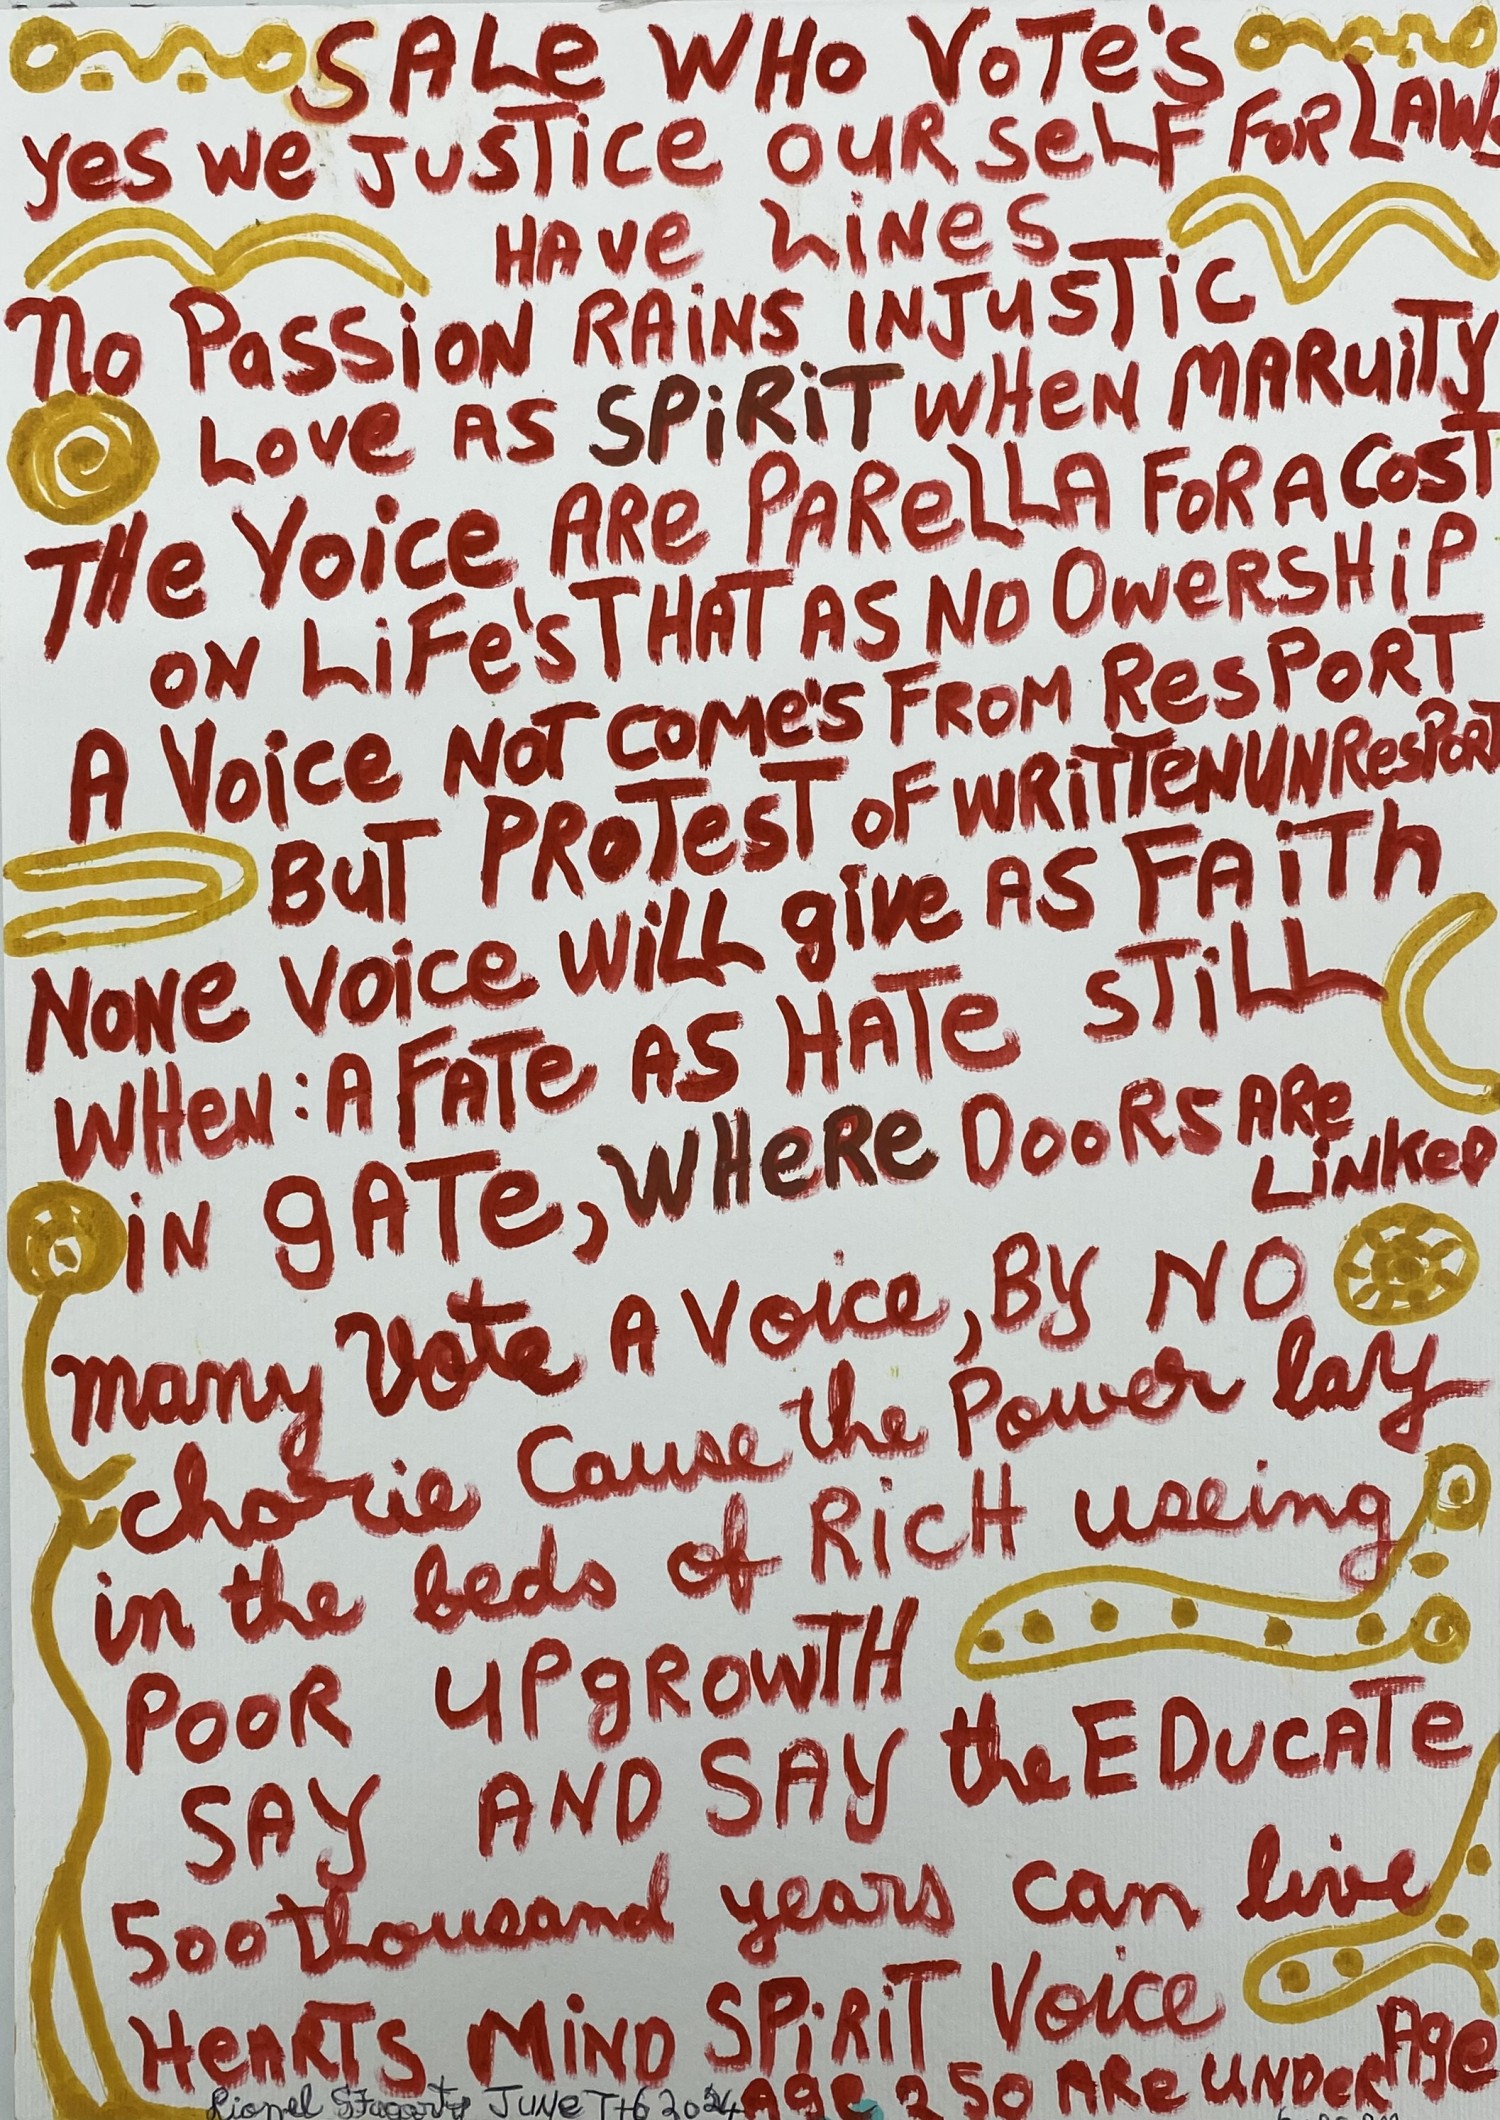 SALe WHo VoTe's
yes we JusTice ouR seLF FoR LAWs
HAVe LiNes
No PassioN RAiNS INJusTic
Love AS SPiRiT wHeN MARuiTy
THe Voice ARe PAReLLA FoR A CosT
oN LiFe's THAT AS NO OweRSHiP
A Voice NoT come's FRoM ResPoRT
BuT PRoTesT oF wRiTTeN UNResPoRT
NoNe voice WiLL give AS FAiTh
WHeN: A FATe AS HATe STiLL
iN gATe, WHeRe DooRS ARe LiNKeD
many Vote A Voice, By NO
choicie Cause the Power lay
in the beds of RicH useing
PooR uPgRowTH
SAY AND SAY the EDucATe
500 thousand years can live
HeARTS MiND SPiRiT Voice
Age 250 ARe UNDeR Age
Lionel Fogarty JUNe T+6 2024